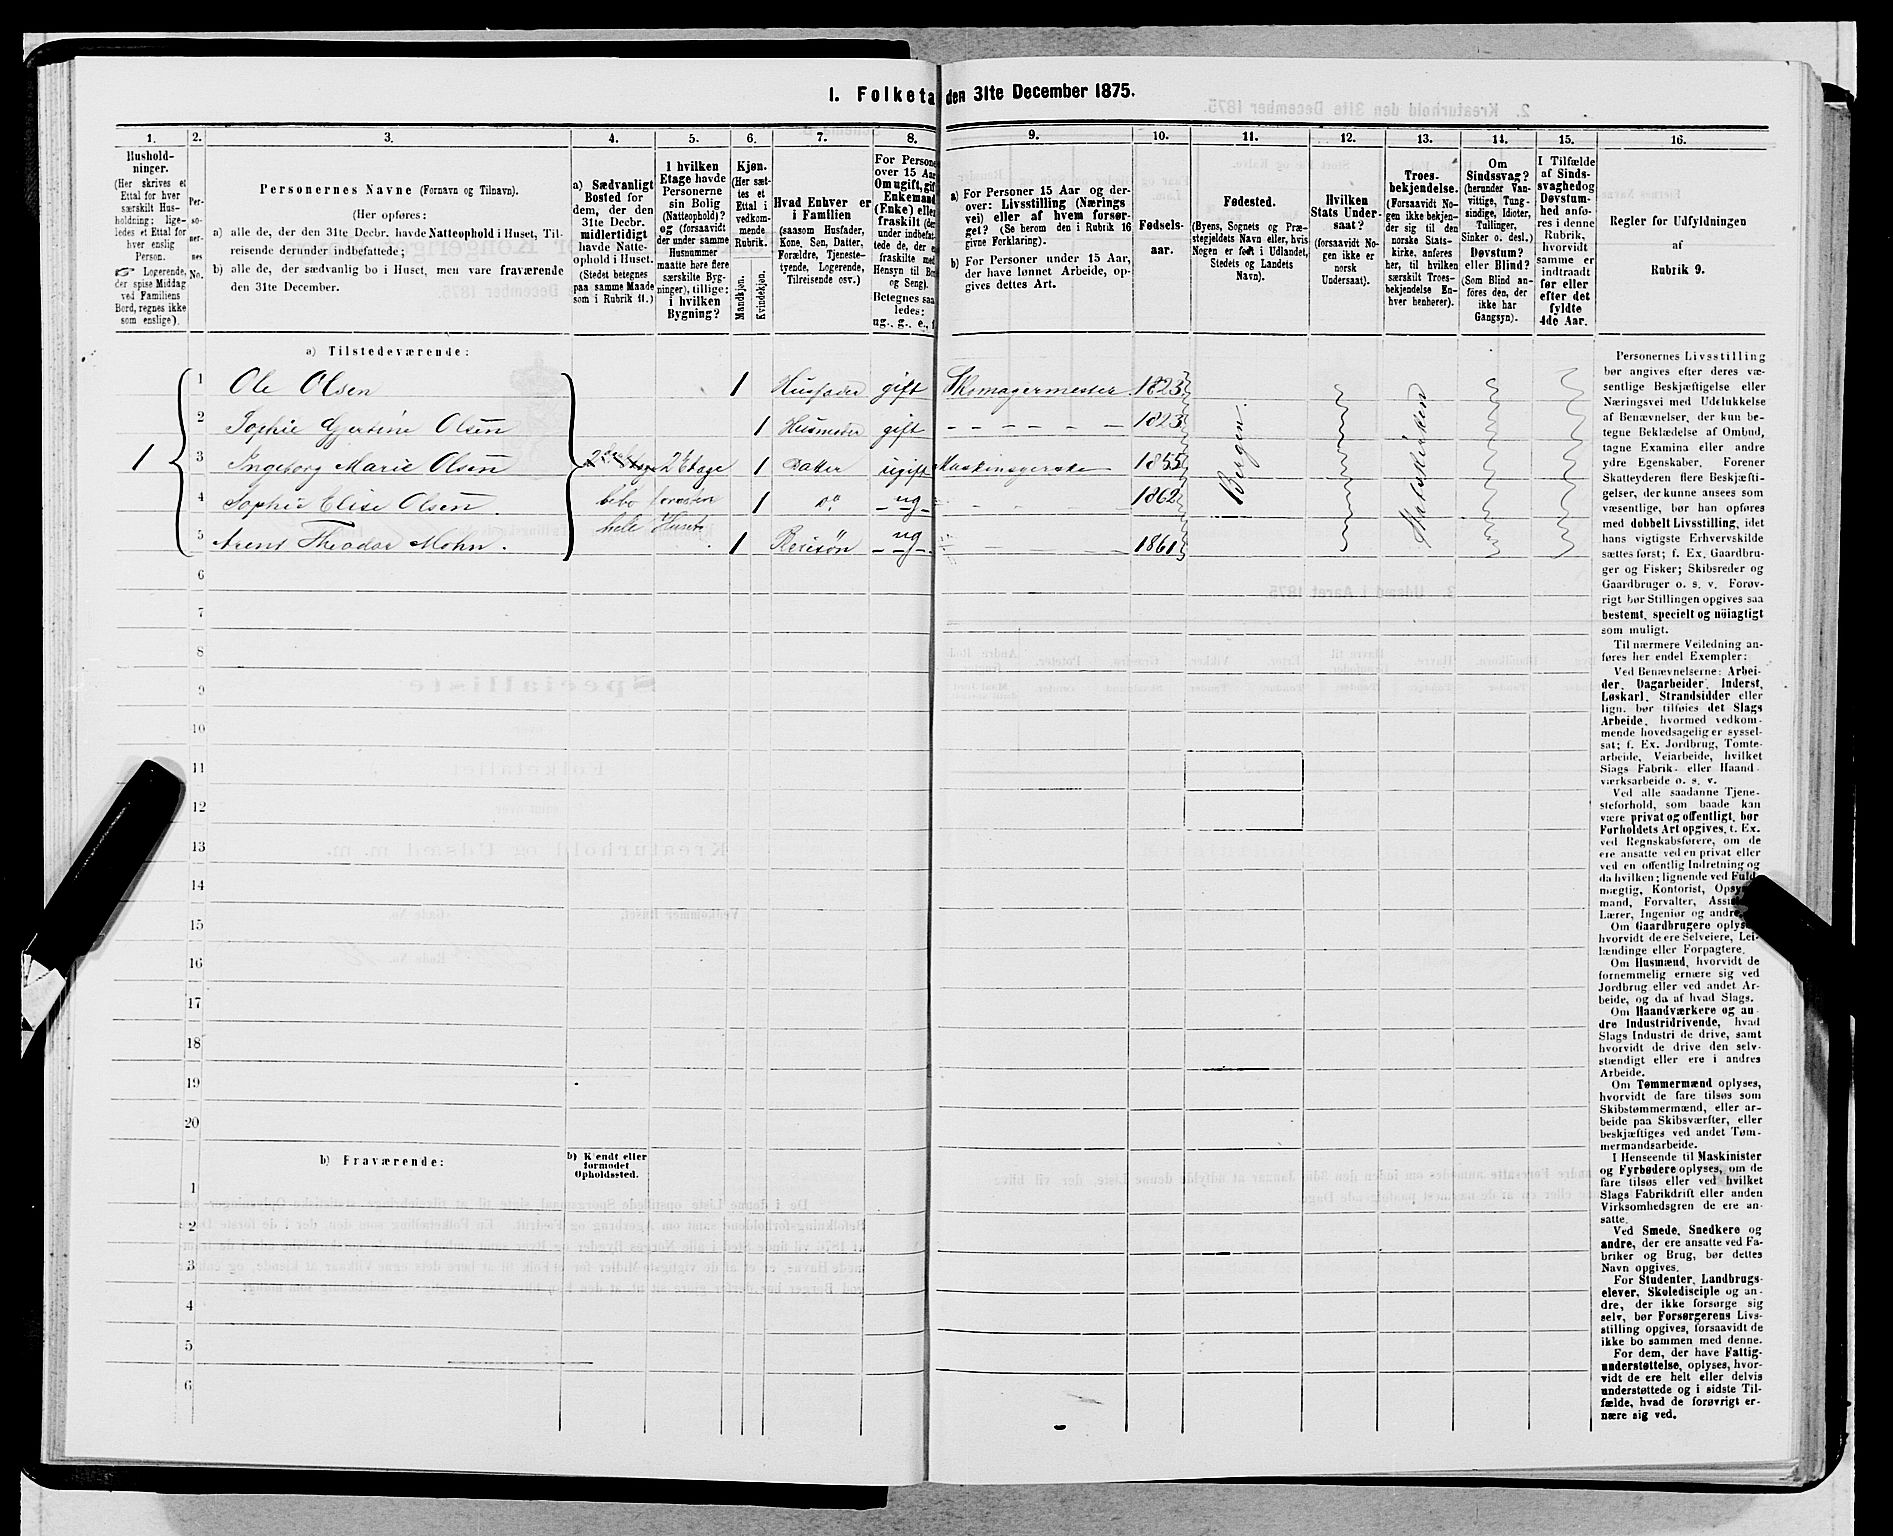 1. Folketa den 31te December 1875.
1.
2.
3.
4.
5.
6.
7.
8.
9.
10.
11.
12.
13.
14.
15.
16.
Hushold-
ninger.
(Her skrives et
Ettal for hver
særskilt Hus-
holdning; lige-
ledes et Ettal for
hver enslig
Person.
☞ Logerende,
der spise Middag
ved Familiens
Bord, regnes ikke
som enslige).
Per-
so-
ner-
nes
No.
Personernes Navne (Fornavn og Tilnavn).
(Her opføres:
a) alle de, der den 31te Decbr. havde Natteophold i Huset, Til-
reisende derunder indbefattede;
b) alle de, der sædvanlig bo i Huset, men vare fraværende
den 31te December.
a) Sædvanligt
Bosted for
dem, der den
31te Decbr.
midlertidigt
havde Natte-
ophold i Huset.
(Stedet betegnes
paa samme Maade
som i Rubrik 11.)
I hvilken
Etage havde
Personerne
sin Bolig
(Natteophold)?
og (forsaavidt
der under samme
Husnummer
maatte høre flere
særskilte Byg-
ninger), tillige:
i hvilken
Bygning?
Kjøn.
(Her sæt-
tes et
Ettal i
vedkom-
mende
Rubrik.
Mandkjøn.
Kvindekjøn.
Hvad Enhver er
i Familien
(saasom Husfader,
Kone, Søn, Datter,
Forældre, Tjeneste-
tyende, Logerende,
Tilreisende osv.)
For Persone
over 15 Aar
Om ugift, gift
Enkemand
(Enke) elle
fraskilt (de
under indbefat-
tede de, der e
fraskilte med
Hensyn til Bo
og Seng).
Betegnes saa
ledes:
ug., g., e., f.
a) For Personer 15 Aar og der-
over: Livsstilling (Nærings
vei) eller af hvem forsør-
get? (Se herom den i Rubrik 16
givne Forklaring).
b) For Personer under 15 Aar,
der have lønnet Arbeide, op-
gives dettes Art.
Fødsels-
aar.
Fødested.
(Byens, Sognets og Præ-
stegjeldets Navn eller, hvis
Nogen er født i Udlandet,
Stedets og Landets
Navn).
Hvilken
Stats Under-
saat?
(forsaavidt No-
gen ikke er
norsk
Undersaat).
Troes-
bekjendelse.
(Forsaavidt No-
gen ikke bekjen-
der sig til den
norske Stats-
kirke, anføres
her, til hvilken
særskilt Troes-
bekjendelse En-
hver henhører).
Om
Sindssvag?
(herunder Van-
vittige, Tung-
sindige, Idioter,
Tullinger,
Sinker o. desl.)
Døvstum?
eller Blind?
(Som Blind an-
føres den, der
ikke har
Gangsyn).
I Tilfælde
af Sinds-
svaghed og
Døvstum-
hed anfø-
res i denne
Rubrik,
hvorvidt
samme er
indtraadt
før eller
efter det
fyldte
4de Aar.
Regler for Udfyldningen
af
Rubrik 9.
a) Tilstedeværende:
1 Ole Olsen 1 Husfader gift Skomagermester 1823
2 Sophie Gjertine Olsen 1 Husmoder gift 1823
1 3 Ingeborg Marie Olsen 2 Etage 1 Datter ugift Maskinsyerske 1855
4 Sophie Elise Olsen. bebo 1 do ug 1862
5 Arent Theodor Mohn. hele Huset 1 ug 1861
Bergen.
Statskirken
6
7
8
9
10
11
12
13
14
15
16
17
18
19
20
b) Fraværende:
b) Kjendt eller
formodet
Opholdssted.
1
2
3
4
5
6
Personernes Livsstilling
bør angives efter deres væ-
sentlige Beskjæftigelse eller
Næringsvei med Udelukkelse
af Benævnelser, der kun be-
tegne Beklædelse af Ombud,
tagne Examina eller andre
ydre Egenskaber. Forener
Skatteyderen flere Beskjæfti-
gelser, der kunne ansees som
væsentlige, bør han opføres
med dobbelt Livsstilling, idet
hans vigtigste Erhvervskilde
sættes først; f. Ex. Gaardbru-
ger og Fisker; Skibsreder og
Gaardbruger o. s. v. Forøv-
rigt bør Stillingen opgives saa
bestemt, specielt og nöiagtigt
som muligt.
Til nærmere Veiledning an-
føres her endel Exempler:
Ved Benævnelserne: Arbei-
der, Dagarbeider, Inderst,
Løskarl, Strandsidder eller
lign. bør tilføies det Slags
Arbeide, hvormed vedkom-
mende hovedsagelig er syssel-
sat; f. Ex. Jordbrug, Tomte-
arbeide, Veiarbeide, hvilket
Slags Fabrik- eller Haand-
værksarbeide o. s. v.
Ved alle saadanne Tjene-
steforhold, som baade kan
være privat og offentligt, bør
Forholdets Art opgives, t. Ex.
ved Regnskabsførere, om de
ere ansatte ved en privat eller
ved en offentlig Indretning og
da hvilken; lignende ved Fuld-
mægtig, Kontorist, Opsy
mand, Forvalter, Assi
Lærer, Ingeniør og andre
Om Gaardbrugere oplys
hvorvidt de ere Selveiere, Lei-
lændinge eller Forpagtere.
Om Husmænd, hvorvidt de
fornemmelig ernære sig ved
Jordbrug eller ved andet Ar-
beide, og da af hvad Slags.
Om Haandværkere og an-
dre Industridrivende, hvad
Slags Industri de drive, samt
hvorvidt de drive den selv-
stændigt eller ere i andres
Arbeide.
Om Tømmermænd oplyses,
hvorvidt de fare tilsøs som
Skibstømmermænd, eller ar-
beide paa Skibsværfter, eller
beskjæftiges ved andet Tøm-
mermandsarbeide.
I Henseende til Maskinister
og Fyrbødere oplyses, om de
fare tilsøs eller ved hvilket
Slags Fabrikdrift eller anden
Virksomhedsgren de ere an-
satte.
Ved Smede, Snedkere og
andre, der ere ansatte ved Fa-
briker og Brug, bør dettes
Navn opgives.
For Studenter, Landbrugs-
elever, Skoledisciple og an-
dre, der ikke forsørge sig
selv, bør Forsørgerens Livs-
stilling opgives, forsaavidt de
ikke bo sammen med denne.
For dem, der have Fattig-
understøttelse, oplyses, hvor-
vidt de ere helt eller delvis
understøttede og i sidste Til-
fælde, hvad de forøvrigt er-
nære sig ved.